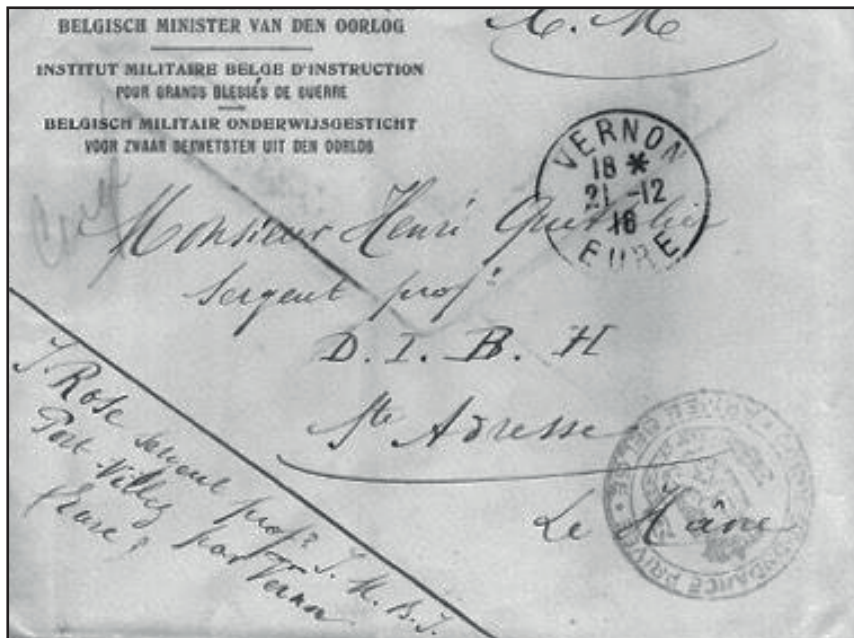 BELGISCH MINISTER VAN DEN OORLOG
INSTITUT MILITAIRE BELGE D'INSTRUCTION
POUR GRANDS BLESSÉS DE GUERRE
BELGISCH MILITAIR ONDERWIJSGESTICHT
VOOR ZWAAR GEKWETSTEN UIT DEN OORLOG
VERNON
18 *
21 -12
16
EURE
Monsieur Henri
Sergent prof.
D. I. B. H
Ste Adresse
Le Hâvre
CORRESPONDANCE PRIVÉE
ARMÉE BELGE
J. Rose sergent prof. I. M. B. I.
Port-Villez par Vernon
(Eure)